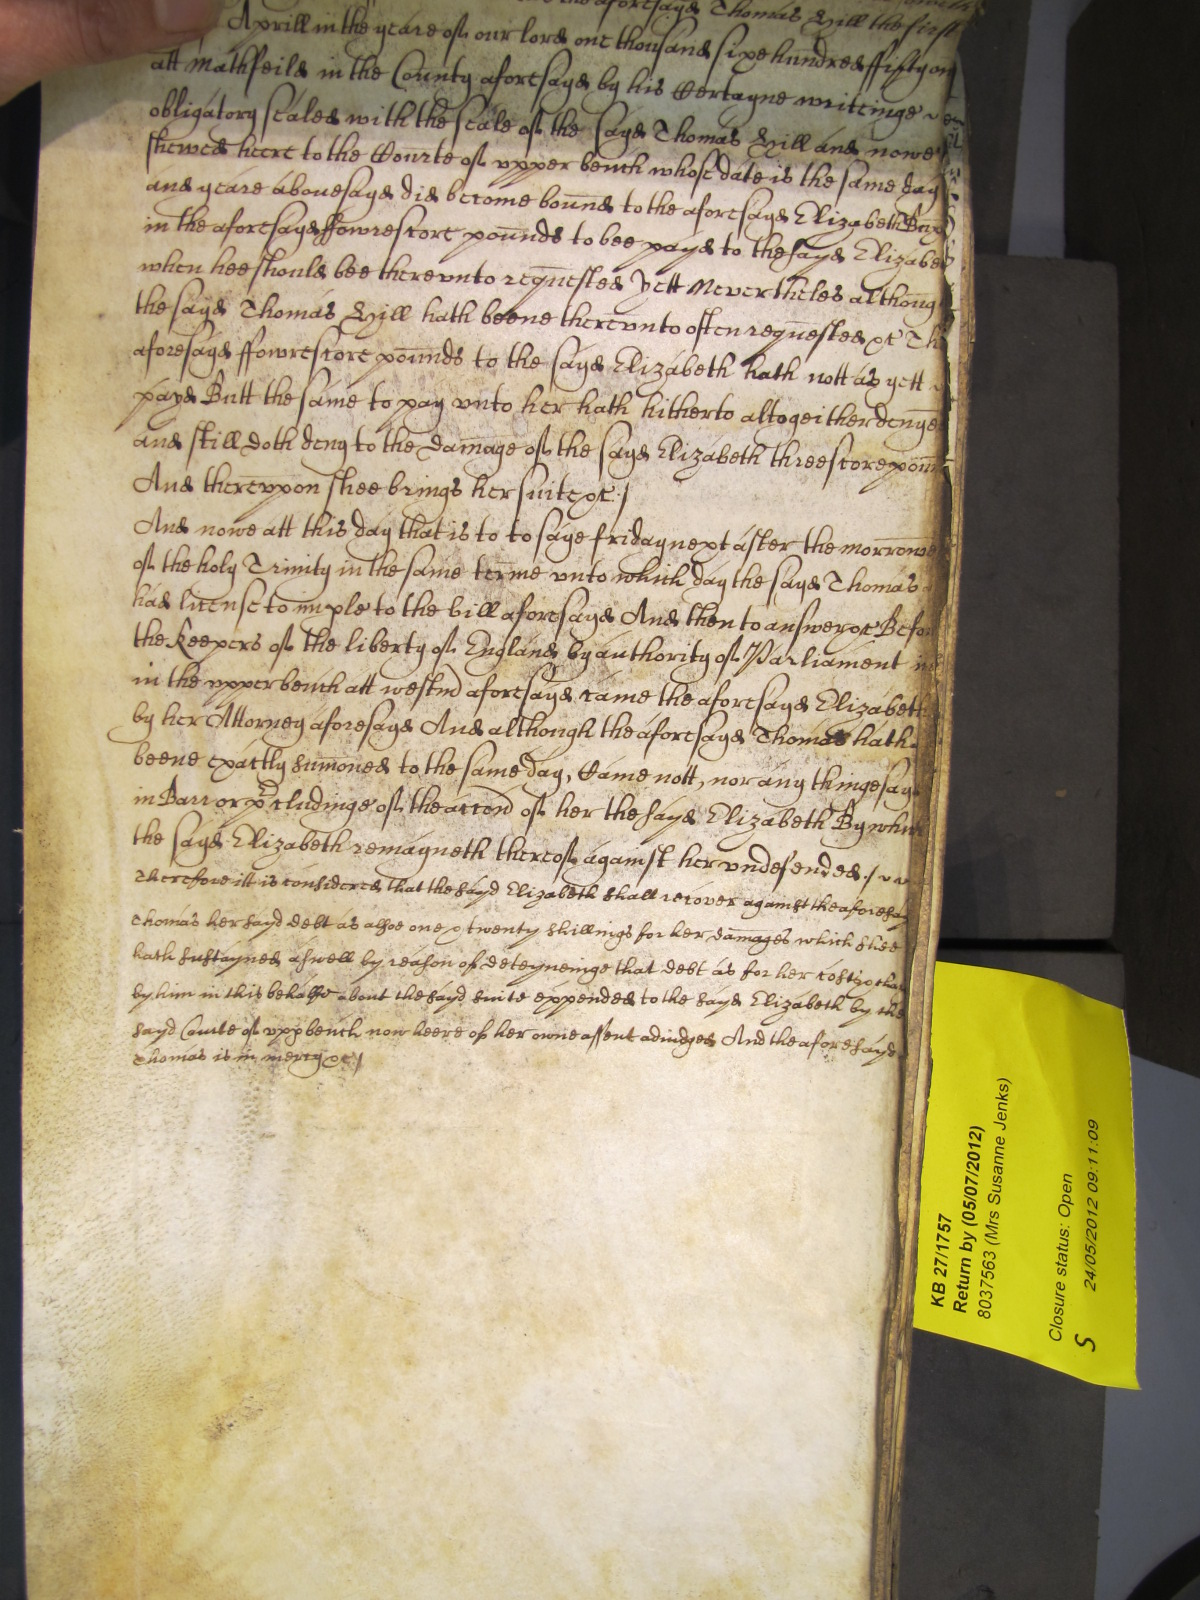 the aforesayd Thomas Hill the first
Aprill in the yeare of our lord one thousand sixe hundred ffifty one
att Mathfeild in the County aforesayd by his Certayne writeinge
obligatory sealed with the seale of the sayd Thomas Hill and nowe
shewed heere to the Courte of vpper bench whose date is the same day
and yeare abovesayd did become bound to the aforesayd Elizabeth
in the aforesayd ffowrescore pounds to bee payd to the sayd Elizabeth
when hee should bee therevnto requested Yett Nevertheles although
the sayd Thomas Hill hath beene therevnto often requested &c The
aforesayd ffowrescore pounds to the sayd Elizabeth hath nott as yett
payd Butt the same to pay vnto her hath hitherto altogeither denyed
and still doth deny to the damage of the sayd Elizabeth threescore pounds
And therevpon shee brings her suite &c /
And nowe att this day that is to to saye friday next after the morrowe
of the holy Trinity in the same terme vnto which day the sayd Thomas
had license to imple to the bill aforesayd And then to answer &c Before
the Keepers of the liberty of England by authority of Parliament
in the vpper bench att westmd aforesayd came the aforesayd Elizabeth
by her Attorney aforesayd And although the aforesayd Thomas hath
beene exactly sumoned to the same day, Came nott, nor any thinge sayd
in Barr or pcludinge of the accon of her the sayd Elizabeth By which
the sayd Elizabeth remayneth thereof against her vndefended /
Therefore itt is considered that the sayd Elizabeth shall recover against the aforesayd
Thomas her sayd debt as alsoe one & twenty shillings for her damages which shee
hath sustayned aswell by reason of deteyneinge that debt as for her costs
by him in this behalfe about the sayd suite expended to the sayd Elizabeth by the
sayd Courte of vpp bench now heere of her owne assent adiudged And the aforesayd
Thomas is in mercy &c /
KB 27/1757
Return by (05/07/2012)
8037563 (Mrs Susanne Jenks)
Closure status: Open
S 24/05/2012 09:11:09